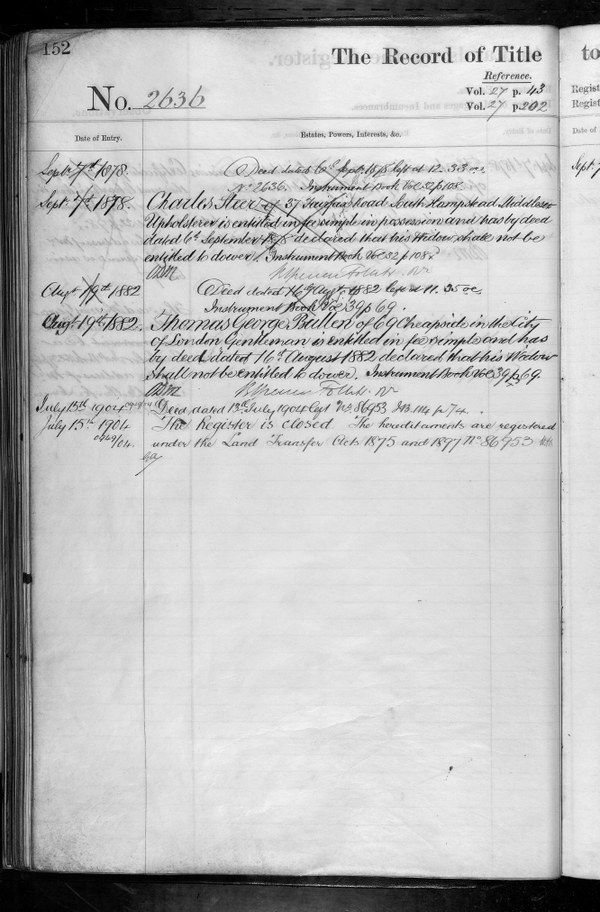 152
The Record of Title
to
Reference.
Vol. 27 p. 43
Vol. 27 p. 202
No. 2636
Regist
Regist
Date of Entry.
Estates, Powers, Interests, &c.
Date of
Sept. 7th 1878.
Deed dated 6th Sept. 1878 left at 12.33
No 2636. Instrument Book Vol 32 p 108.
Sept. 7th 1878.
Charles Steer of 37 Fairfax road South Hampstead Middlesex
Upholsterer is entitled in fee simple in possession and has by deed
dated 6th September 1878 declared that his Widow shall not be
entitled to dower. Instrument Book Vol 32 p 108.
Augt 19th 1882
Deed dated 16th Augt. 1882 left at 11.35
Instrument Book Vol 39 p 69.
Augt 19th 1882.
Thomas George Bullen of 69 Cheapside in the City
of London Gentleman is entitled in fee simple and has
by deed dated 16th August 1882 declared that his Widow
shall not be entitled to dower. Instrument Book Vol 39 p 69.
July 15th 1904
Deed dated 13th July 1904 No 86953 IB. 114 p 74.
July 15th 1904
The Register is closed The hereditaments are registered
under the Land Transfer Acts 1875 and 1897 No 86953
Sept 7